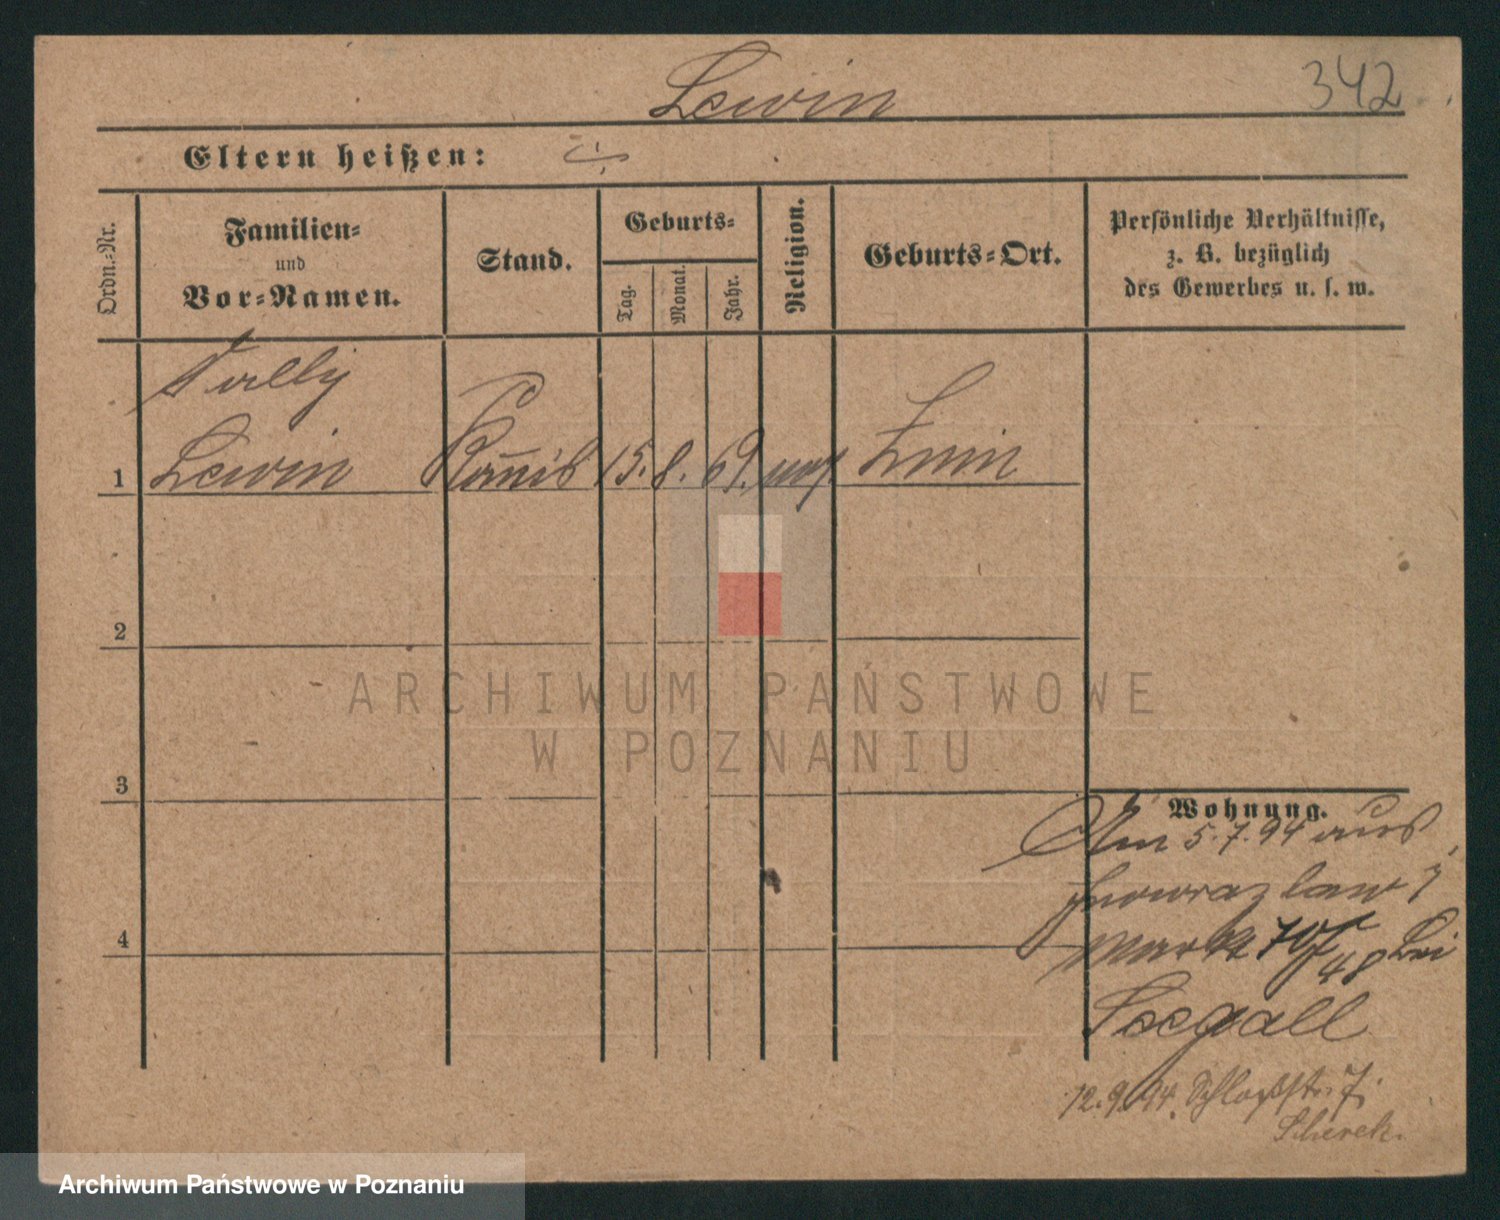 Lewin 342
Eltern heißen:
Ordn.-Nr.
Familien-
und
Vor-Namen.
Stand.
Geburts-
Tag.
Monat.
Jahr.
Religion.
Geburts-Ort.
Persönliche Verhältnisse,
z. B. bezüglich
des Gewerbes u. s. w.
Sally
1 Lewin 15. 8. 69. mos. Znin
2
3
4
ARCHIWUM PAŃSTWOWE
W POZNANIU
Wohnung.
Am 5.7.94 aus
Inowrazlaw
Markt 48 bei
Seegall
12.9.94. Schloßstr. 7.
Scherek.
Archiwum Państwowe w Poznaniu